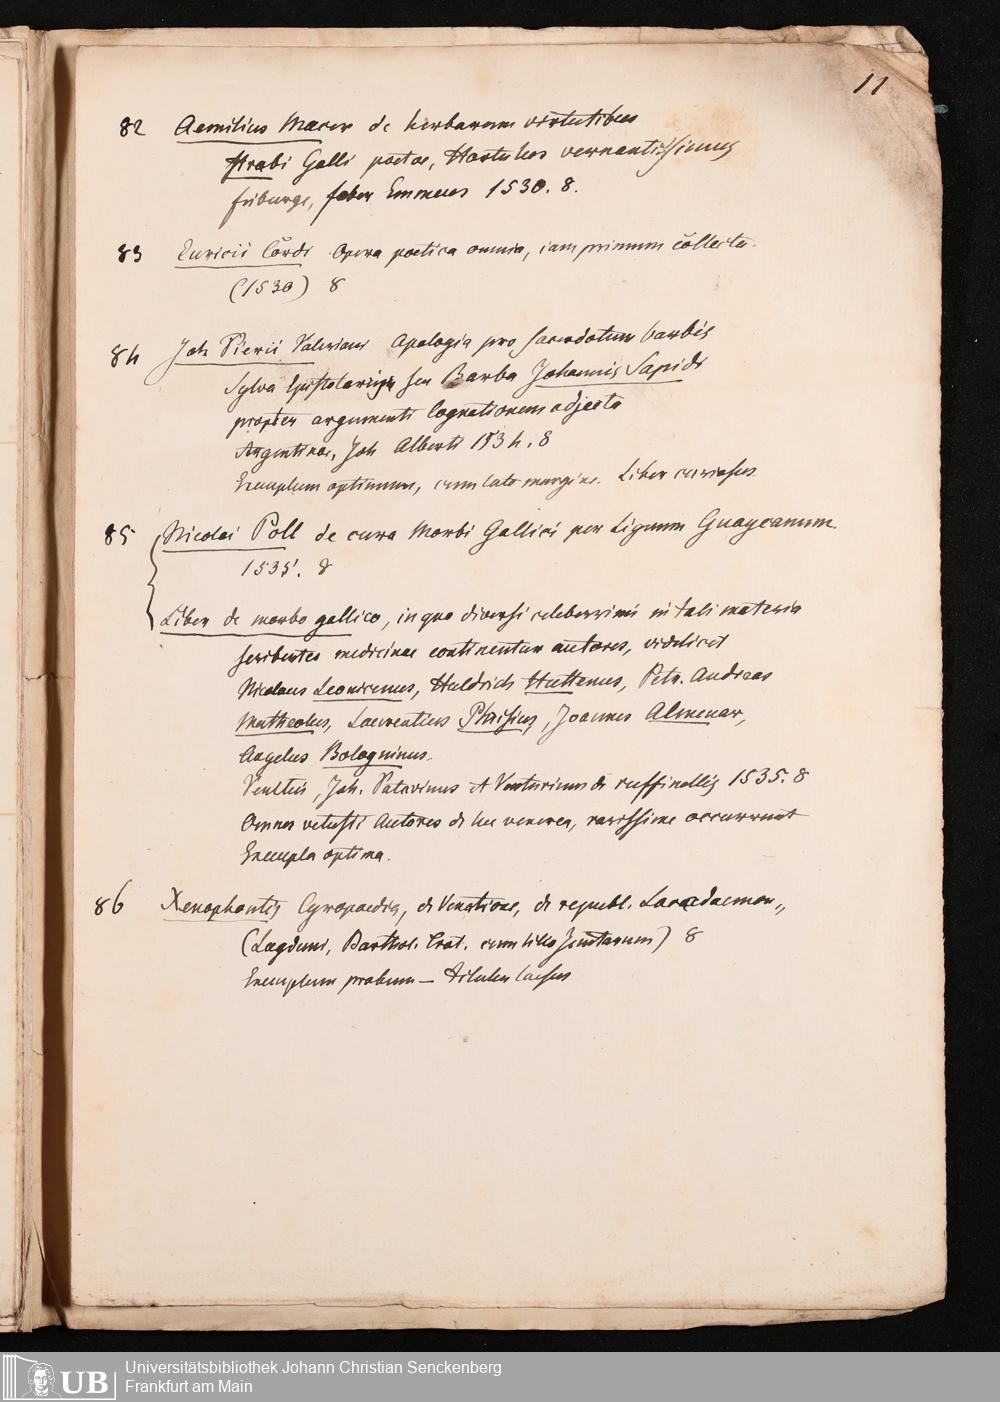 11
82 Aemilius Macer de herbarum virtutibus
Strabi Galli poetae, Hortulus vernantissimus
friburge, faber Emmeus 1530. 8.
83 Euricii Cordi Opera poetica omnia, iam primum collecta.
(1530) 8
84 Joh Pierii Valeriani Apologia pro sacerdotum barbis
Sylva Epistolaris seu Barba Johannis Sapidi
propter argumenti Cognationem adjecta
Argentinae, Joh Alberti 1534. 8
Exemplum optimum, cum lato margine. Liber curiosus
85 Nicolai Poll de cura Morbi Gallici per Lignum Guaycanum
1535. 8
Liber de morbo gallico, in quo diversi celeberrimi in tali materia
scribentes medicinae continentur autores, videlicet
Nicolaus Leonicenus, Huldrich Huttenus, Petr. Andreas
Mattheolus, Laurentius Phrisius, Joannes Almenar,
Angelus Bologninus.
Venetiis, Joh. Patavinus et Venturinus de ruffinellis 1535. 8
Omnes vetusti Autores de lue venerea, rarissime occurrunt
Exempla optima.
86 Xenophontis Cyropaedia, de Venatione, de republ. Lacedaemon,,
(Lugduni, Barthol. Trot. cum lilio Juntarum) 8
Exemplum probum — titulus laesus
UB
Universitätsbibliothek Johann Christian Senckenberg
Frankfurt am Main